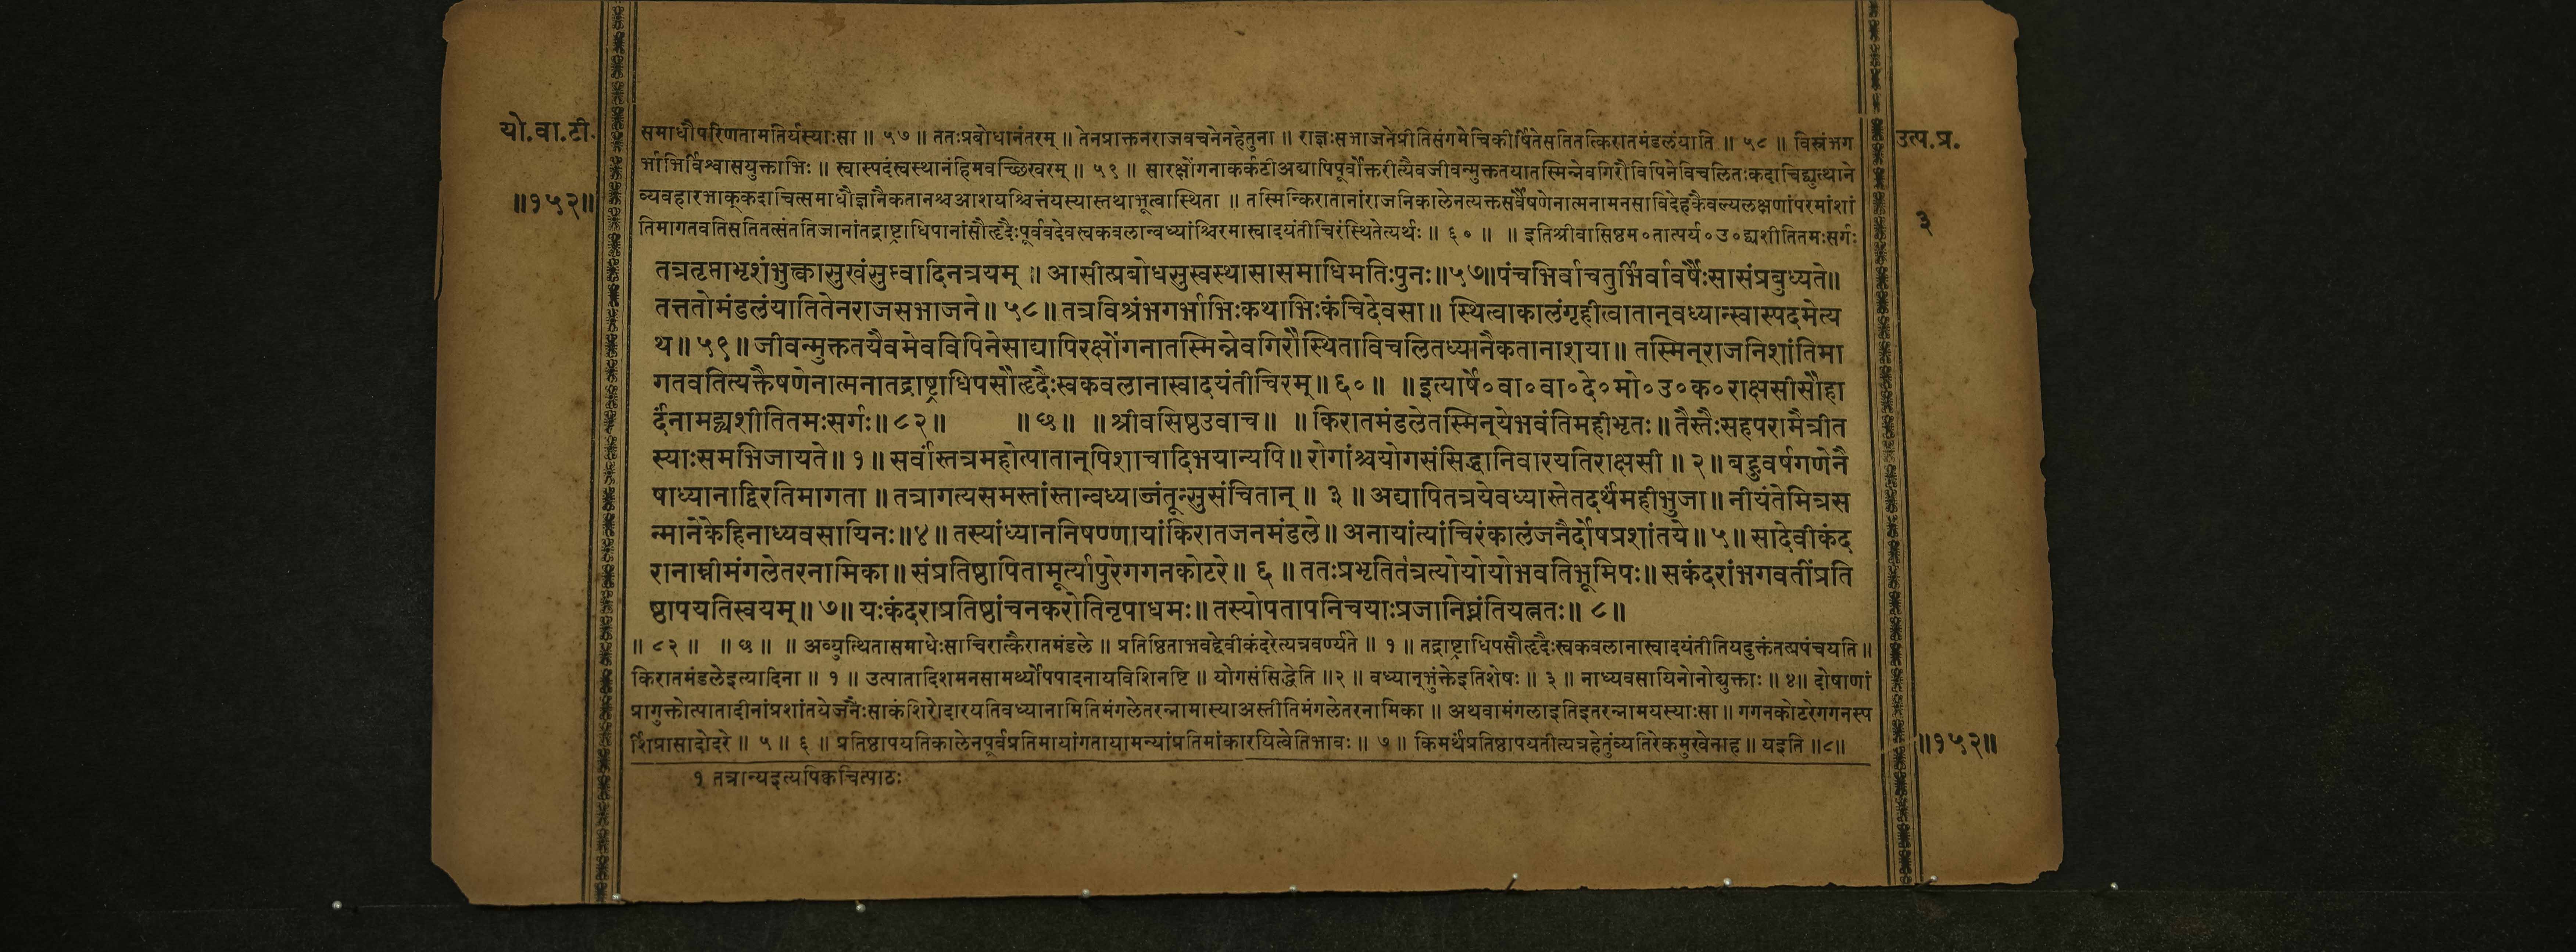 यो.वा.टी.
॥१५२॥
समाधौपरिणतामतिर्यस्याःसा ॥ ५७ ॥ ततःप्रबोधानंतरम् ॥ तेनप्राक्तनराजवचनेनहेतुना ॥ राज्ञःसभाजनेप्रीतिसंगमेचिकीर्षितेसतितत्किरातमंडलंयाति ॥ ५८ ॥ विस्रंभग
र्भाभिर्विश्वासयुक्ताभिः ॥ स्वास्पदंस्वस्थानंहिमवच्छिखरम् ॥ ५९ ॥ सारक्षोंगनाकर्कटीअद्यापिपूर्वोक्तरीत्यैवजीवन्मुक्ततयातस्मिन्नेवगिरौविपिनेविचलितःकदाचिद्व्युत्थाने
व्यवहारभाक्कदाचित्समाधौज्ञानैकतानश्चआशयश्चित्तंयस्यास्तथाभूत्वास्थिता ॥ तस्मिन्किरातानांराजनिकालेनत्यक्तसर्वैषणेनात्मनामनसाविदेहकैवल्यलक्षणांपरमांशां
तिमागतवतिसतितत्संततिजानांतद्राष्ट्राधिपानांसौहृदैःपूर्ववदेवस्वकवलान्वध्यांश्चिरमास्वादयंतीचिरंस्थितेत्यर्थः ॥ ६० ॥ ॥ इतिश्रीवासिष्ठम०तात्पर्य०उ०द्व्यशीतितमःसर्गः
तत्रतृप्ताभृशंभुक्त्वासुखंसुप्त्वादिनत्रयम् ॥ आसीत्प्रबोधसुस्वस्थासासमाधिमतिःपुनः॥५७॥पंचभिर्वाचतुर्भिर्वावर्षैःसासंप्रबुध्यते॥
तत्ततोमंडलंयातितेनराजसभाजने॥ ५८॥ तत्रविश्रंभगर्भाभिःकथाभिःकंचिदेवसा॥ स्थित्वाकालंगृहीत्वातान्वध्यान्स्वास्पदमेत्य
थ॥ ५९॥ जीवन्मुक्ततयैवमेवविपिनेसाद्यापिरक्षोंगनातस्मिन्नेवगिरौस्थिताविचलितध्यानैकतानाशया॥ तस्मिन्राजनिशांतिमा
गतवतित्यक्तैषणेनात्मनातद्राष्ट्राधिपसौहृदैःस्वकवलानास्वादयंतीचिरम्॥ ६०॥ ॥इत्यार्षे०वा०वा०दे०मो०उ०क०राक्षसीसौहा
र्दंनामद्व्यशीतितमःसर्गः॥ ८२॥ ॥ छ॥ ॥ श्रीवसिष्ठउवाच॥ ॥ किरातमंडलेतस्मिन्येभवंतिमहीभृतः॥ तैस्तैःसहपरामैत्रीत
स्याःसमभिजायते॥ १॥ सर्वांस्तत्रमहोत्पातान्पिशाचादिभयान्यपि॥ रोगांश्चयोगसंसिद्धानिवारयतिराक्षसी ॥ २॥ बहुवर्षगणेनै
षाध्यानाद्विरतिमागता ॥ तत्रागत्यसमस्तांस्तान्वध्याञ्जंतून्सुसंचितान् ॥ ३ ॥ अद्यापितत्रयेवध्यास्तेतदर्थंमहीभुजा॥ नीयंतेमित्रस
न्मानेकेहिनाध्यवसायिनः॥४॥ तस्यांध्याननिषण्णायांकिरातजनमंडले॥ अनायांत्यांचिरंकालंजनैर्दोषप्रशांतये॥ ५॥ सादेवीकंद
रानाम्नीमंगलेतरनामिका॥ संप्रतिष्ठापितामूर्त्यापुरेगगनकोटरे॥ ६ ॥ ततःप्रभृतितंत्रत्योयोयोभवतिभूमिपः॥ सकंदरांभगवतींप्रति
ष्ठापयतिस्वयम्॥ ७॥ यःकंदराप्रतिष्ठांचनकरोतिनृपाधमः॥ तस्योपतापनिचयाःप्रजानिघ्नंतियत्नतः॥ ८॥
॥ ८२ ॥ ॥ छ ॥ ॥ अव्युत्थितासमाधेःसाचिरात्कैरातमंडले ॥ प्रतिष्ठिताभवद्देवीकंदरेत्यत्रवर्ण्यते ॥ १ ॥ तद्राष्ट्राधिपसौहृदैःस्वकवलानास्वादयंतीतियदुक्तंतत्प्रपंचयति॥
किरातमंडलेइत्यादिना ॥ १ ॥ उत्पातादिशमनसामर्थ्योपपादनायविशिनष्टि ॥ योगसंसिद्धेति ॥२॥ वध्यान्भुंक्तेइतिशेषः ॥ ३ ॥ नाध्यवसायिनोनोद्युक्ताः ॥ ४॥ दोषाणां
प्रागुक्तोत्पातादीनांप्रशांतयेजनैःसाकंशिरोदारयतिवध्यानामितिमंगलेतरन्नामास्याअस्तीतिमंगलेतरनामिका ॥ अथवामंगलाइतिइतरन्नामयस्याःसा ॥ गगनकोटरेगगनस्प
र्शिप्रासादोदरे ॥ ५ ॥ ६ ॥ प्रतिष्ठापयतिकालेनपूर्वप्रतिमायांगतायामन्यांप्रतिमांकारयित्वेतिभावः ॥ ७ ॥ किमर्थंप्रतिष्ठापयतीत्यत्रहेतुंव्यतिरेकमुखेनाह ॥ यइति ॥८॥
१ तत्रान्यइत्यपिक्वचित्पाठः
उत्प.प्र.
३
॥१५२॥